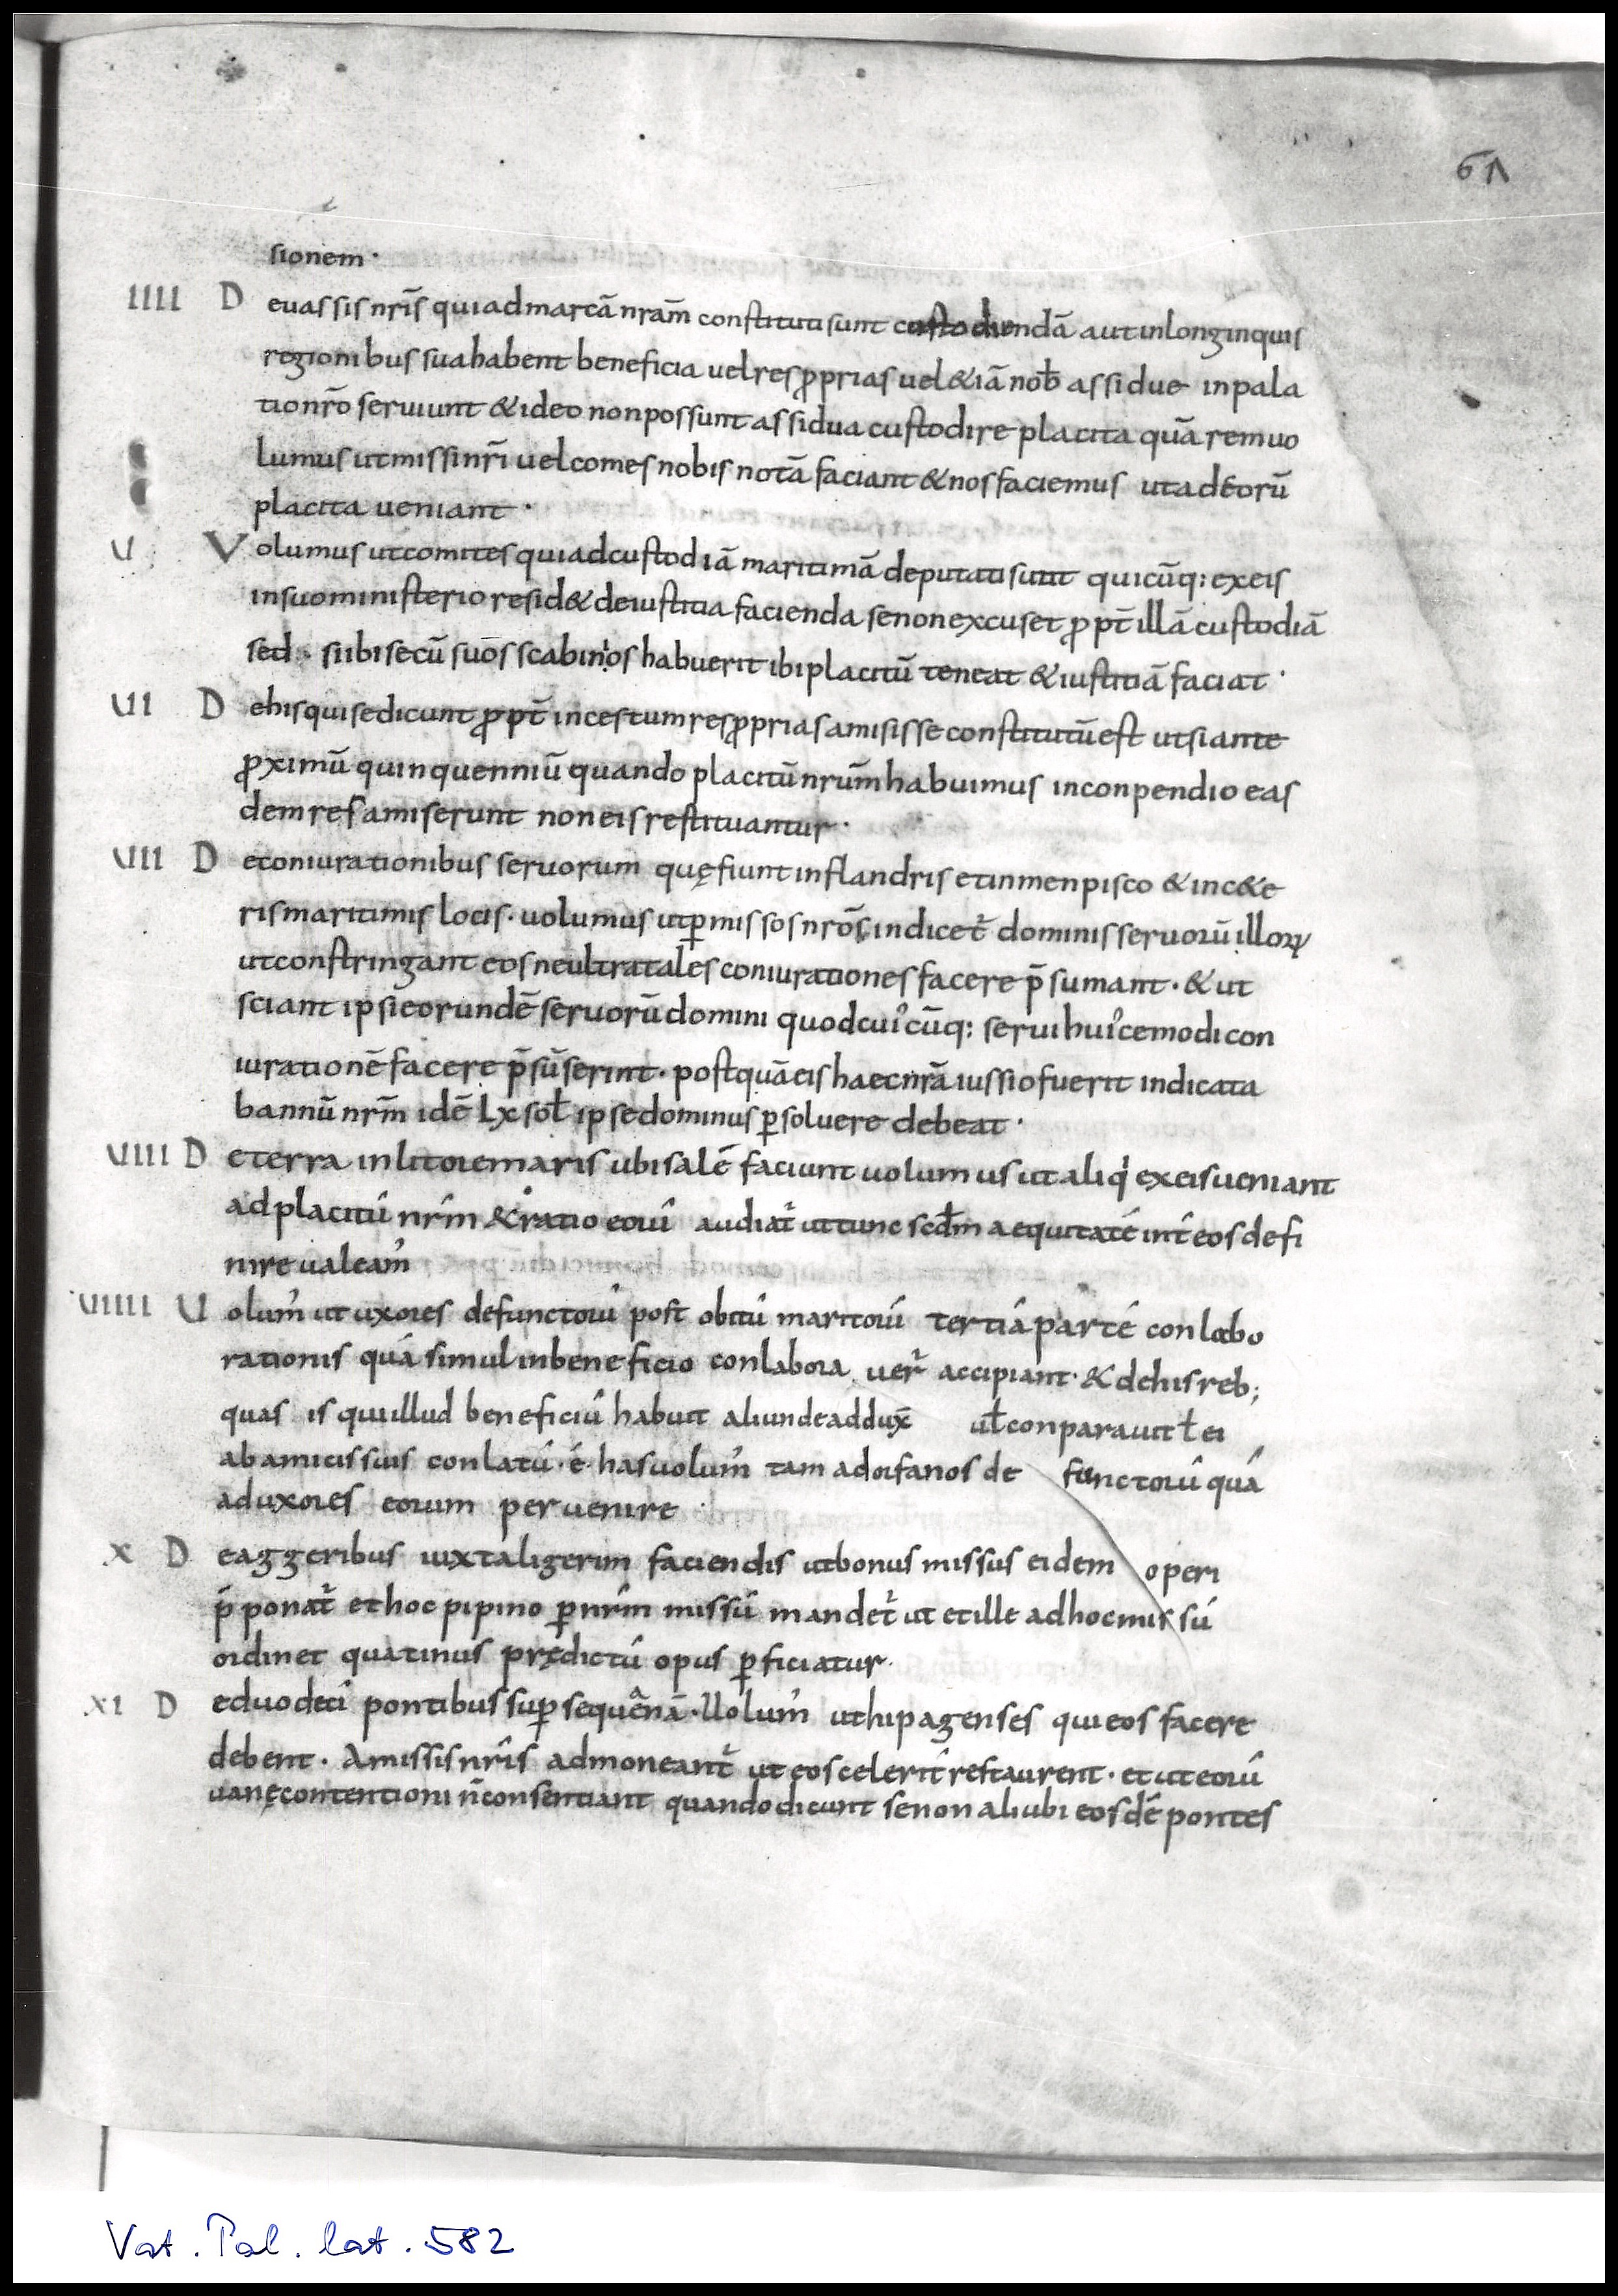 61
sionem·
IIII D euassis nr̄is qui ad marcā nrām̄ constituti sunt custodiendā aut in longinquis
regionibus sua habent beneficia uel res ꝓprias uel &iā nob̄ assidue in pala
tio nr̄o seruiunt & ideo non possunt assidua custodire placita quā rem uo
lumus ut missi nr̄i uel comes nobis notā faciant & nos faciemus ut ad eorū
placita ueniant·
U Volumus ut comites qui ad custodiā maritimā deputati sunt quicūq: ex eis
in suo ministerio resid& de iustitia facienda se non excuset ꝓpt̄ illā custodiā
sed· si ibi secū suos scabinios habuerit ibi placitū teneat & iustitiā faciat·
UI D e his qui se dicunt ꝓpt̄ incestum res ꝓprias amisisse constitutū est ut si ante
ꝓximū quinquenniū quando placitū nrūm̄ habuimus in conpendio eas
dem res amiserunt non eis restituantur·
UII D e coniurationibus seruorum quę fiunt in flandris et in menpisco & in c&e
ris maritimis locis· uolumus ut ꝑ missos nrōs indicet̄ dominis seruorū illoꝝ
ut constringant eos ne ultra tales coniurationes facere p̄sumant· & ut
sciant ipsi eorundē seruorū domini quod cuicūq: serui huicemodi con
iurationē facere p̄sūserint· postquā eis haec nrā iussio fuerit indicata
bannū nrm̄ idē Lx sol̄ ipse dominus ꝑsoluere debeat·
UIII D e terra in litore maris ubi salē faciunt uolumus ut aliq̇ ex eis ueniant
ad placitū nrm̄ & ratio eorū audiat̄ ut tunc scdm̄ aequitatē int̄ eos defi
nire ualeam̄
UIIII U olum̄ ut uxores defunctorū post obitū maritorū tertiā partē conlabo
rationis quā simul in beneficio conlabora uer̄ accipiant· & de his reb;
quas is qui illud beneficiū habuit aliunde addux̄ ul̄ conparauit ł ei
ab amicis suis conlatū· ē· has uolum̄ tam ad orfanos de functorū quā
ad uxores eorum peruenire
X D e aggeribus iuxta ligerim faciendis ut bonus missus eidem operi
p̄ponat̄ et hoc pipino ꝑ nrm̄ missū mandet̄ ut et ille ad hoc missū
ordinet quatinus prędictū opus ꝑficiatur·
XI D e duodeci pontibus suꝑ sequanā· Uolum̄ ut hi pagenses qui eos facere
debent· A missis nr̄is admoneant̄ ut eos celerit̄ restaurent· et ut eorū
uanę contentioni n̄ consentiant quando dicunt se non aliubi eosdē pontes
Vat. Pal. lat. 582